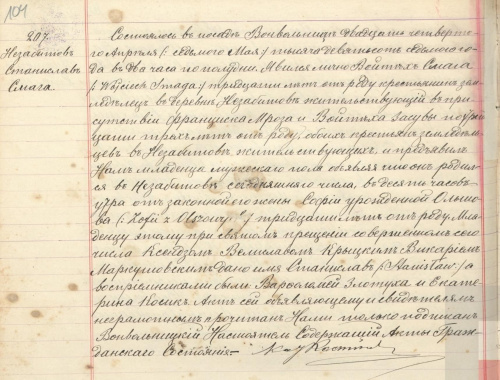 104
207.
Незабитовъ
Станиславъ
Смага.
Состоялось въ посадѣ Вонвольницѣ двадцать четверта-
го Апрѣля (: седьмого Мая :) тысяча девятьсотъ седьмого го-
да въ два часа по полудни. Явился лично Войтѣхъ Смага
(: Wojciech Smaga :) тридцати лѣтъ отъ роду крестьянинъ зем-
ледѣлецъ въ деревнѣ Незабитовѣ жительствующій въ при-
сутствіи Францишка Мроза и Войтѣха Засувы по трид-
цати трехъ лѣтъ отъ роду, обоихъ крестьянъ земледѣль-
цевъ въ Незабитовѣ жительствующихъ и предъявилъ
Намъ младенца мужескаго пола объявляя что онъ родил-
ся въ Незабитовѣ сегодняшняго числа, въ десять часовъ
утра отъ законной его жены Софіи урожденной Ольшо-
ва (: Zofii z :) тридцати лѣтъ отъ роду. Мла-
денцу этому при святомъ крещеніи совершенномъ сего
числа Ксендзомъ Крыцкимъ Викаріемъ
Маркушовскимъ дано имя Станиславъ (: Stanisław :) а
воспріемниками были Варѳоломей Злотуха и Екате-
рина Косикъ. Актъ сей объявляющему и свидѣтелямъ
неграмотнымъ прочитанъ Нами только подписанъ.
Вонвольницкій Настоятель Содержащій Акты Граж-
данскаго Состоянія.